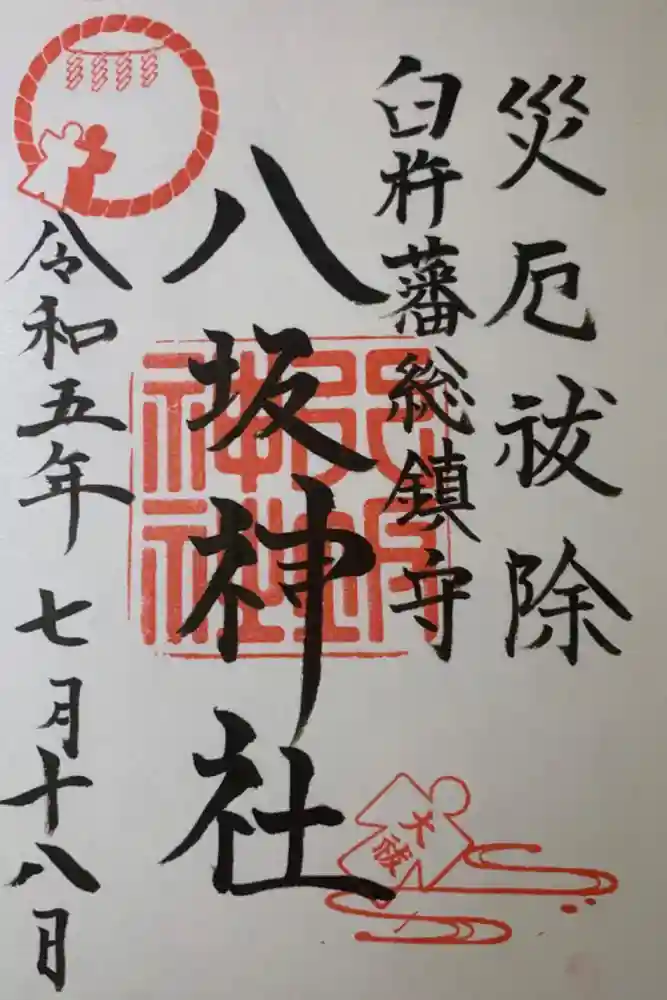 災厄祓除
臼杵藩総鎮守
八坂神社
令和五年 七月十八日
大祓